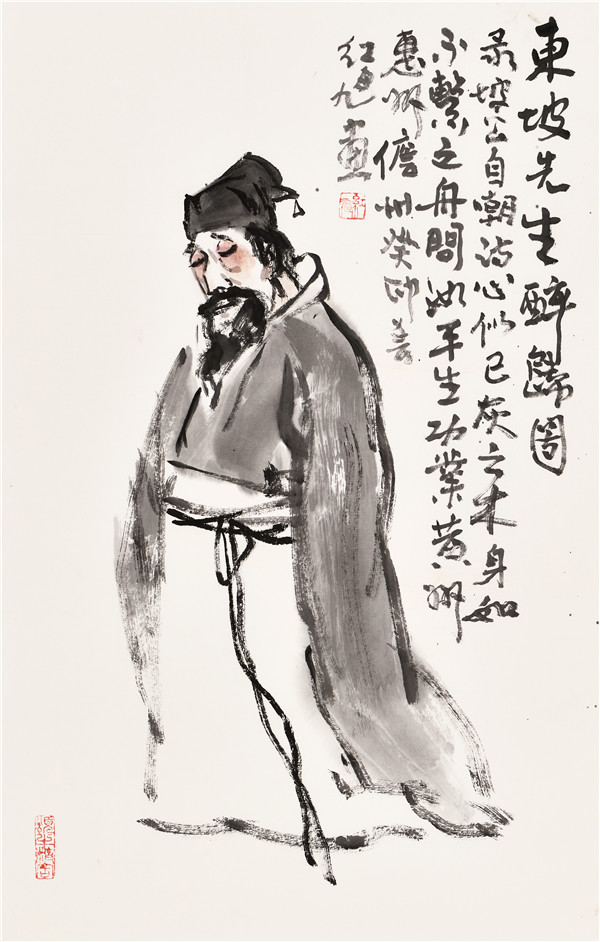 東坡先生醉歸圖
录坡公自嘲诗心似已灰之木身如
不繫之舟問汝平生功業黄州
惠州儋州癸卯春
红九畫